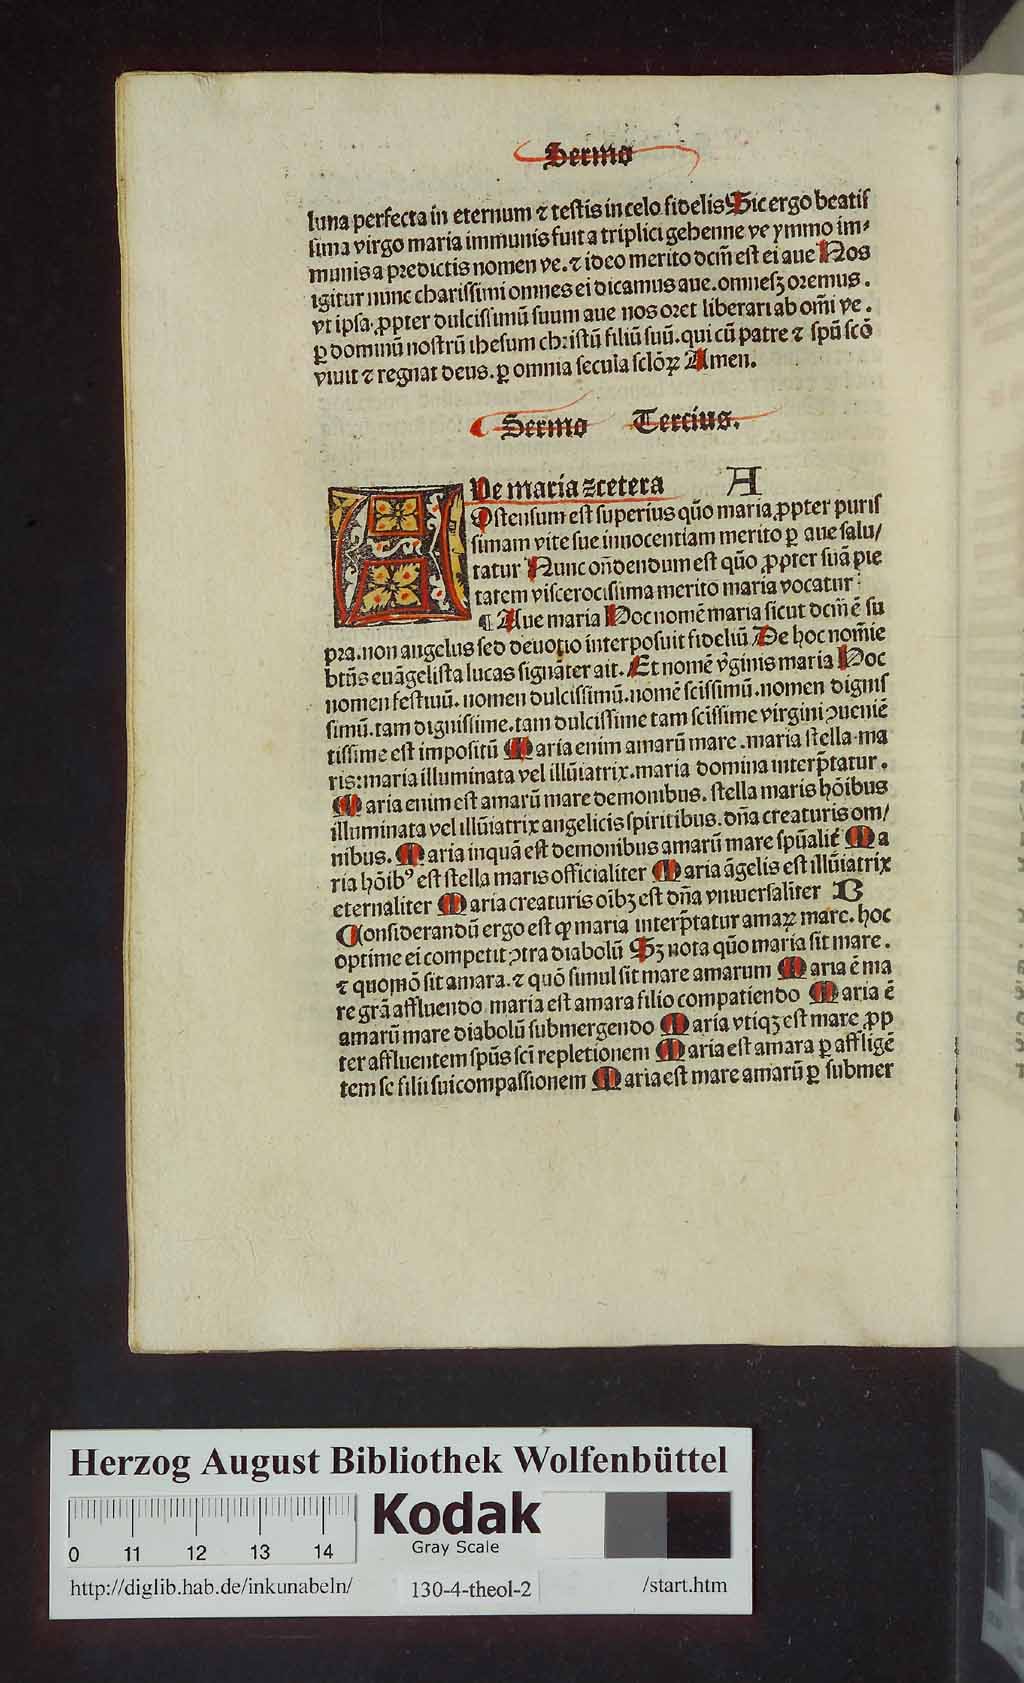 Sermo
luna perfecta in eternum ⁊ testis in celo fidelis Sic ergo beatis
sima virgo maria immunis fuit a triplici gehenne ve ymmo im⸗
munis a predictis nomen ve. ⁊ ideo merito dcm̄ est ei aue Nos
igitur nunc charissimi omnes ei dicamus aue. omnesqꝫ oremus.
vt ipsa ꝓpter dulcissimū suum aue nos oret liberari ab om̄i ve.
ꝑ dominū nostrū ihesum christū filiū suū. qui cū patre ⁊ spū scō
viuit ⁊ regnat deus. ꝑ omnia secula sclōꝝ Amen.
Sermo Tercius.
AUe maria ⁊cetera A
Ostensum est superius quō maria ꝓpter puris
simam vite sue innocentiam merito ꝑ aue salu/
tatur Nunc on̄dendum est quō ꝓpter suā pie
tatem viscerocissima merito maria vocatur:
¶ Aue maria Hoc nomē maria sicut dcm̄ ē su
pra. non angelus sed deuotio interposuit fideliū De hoc nom̄ie
btūs euāgelista lucas signāter ait. Et nomē v̓ginis maria Hoc
nomen festiuū. nomen dulcissimū. nomē scissimū. nomen dignis
simū. tam dignissime. tam dulcissime tam scīssime virgini ↄueniē
tissime est impositū Maria enim amarū mare. maria stella ma
ris: maria illuminata vel illūiatrix. maria domina interp̄tatur.
Maria enim est amarū mare demonibus. stella maris hōibus
illuminata vel illūiatrix angelicis spiritibus. dn̄a creaturis om/
nibus. Maria inquā est demonibus amarū mare spūalit̓ Ma
ria hōibꝰ est stella maris officialiter Maria āgelis est illūiatrix
eternaliter Maria creaturis oībꝫ est dn̄a vniuersaliter B
Considerandū ergo est ꝙ maria interp̄tatur amaꝝ mare. hoc
optime ei competit ↄtra diabolū Sꝫ nota quō maria sit mare.
⁊ quomō sit amara. ⁊ quō simul sit mare amarum Maria ē ma
re grā affluendo maria est amara filio compatiendo Maria ē
amarū mare diabolū submergendo Maria vtiqꝫ est mare ꝓp
ter affluentem spūs sci repletionem Maria est amara ꝑ affligē
tem se filii sui compassionem Maria est mare amarū ꝑ submer
Herzog August Bibliothek Wolfenbüttel
0 11 12 13 14
Kodak
Gray Scale
http://diglib.hab.de/inkunabeln/ 130-4-theol-2 /start.htm